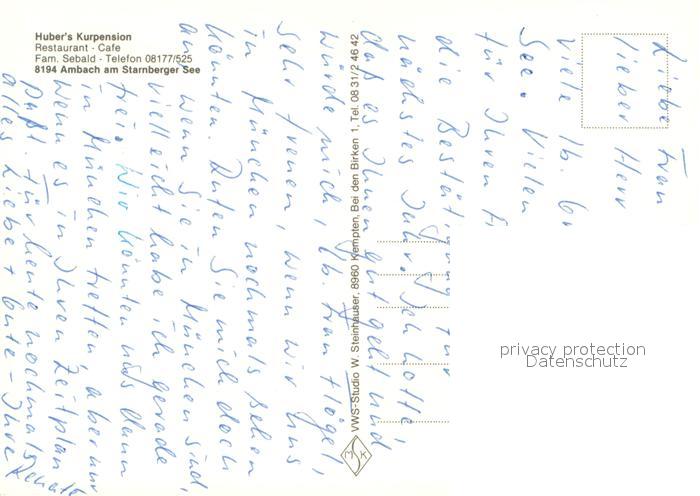 Huber's Kurpension
Restaurant - Cafe
Fam. Sebald - Telefon 08177/525
8194 Ambach am Starnberger See
VWS-Studio W. Steinhäuser, 8960 Kempten, Bei den Birken 1, Tel. 08 31/2 46 42
MSK
Liebe Frau
lieber Herr
viele lb. Gr
See. Vielen
für Ihren
die Bestätigung für
nächstes Jahr. Ich hoffe,
daß es Ihnen gut geht und
würde mich, lb. Frau Flögel,
sehr freuen, wenn wir uns
in München nochmals sehen
könnten. Rufen Sie mich doch
an wenn Sie in München sind,
vielleicht habe ich gerade
frei. Wir könnten uns dann
in München treffen aber nur
wenn es in Ihren Zeitplan
paßt. Für heute nochmals
alles Liebe + Gute - Ihre
privacy protection
Datenschutz